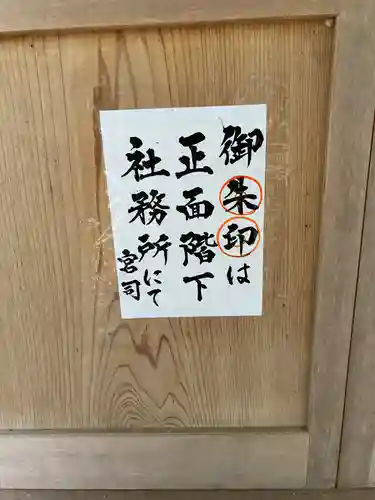 御朱印は
正面階下
社務所にて
宮司